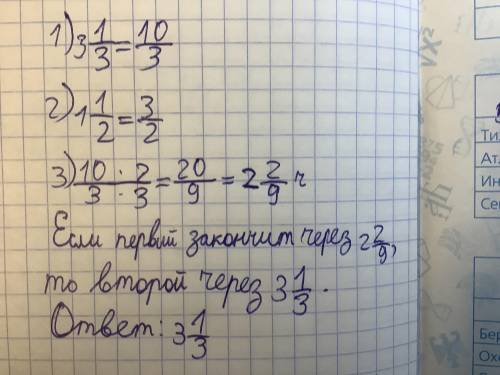 1) 3 1/3 = 10/3
2) 1 1/2 = 3/2
3) 10/3 : 2/3 = 20/9 = 2 2/9 ч
Если первый закончит через 2 2/9,
то второй через 3 1/3.
Ответ: 3 1/3
Ти
Ат
Ин
Се
Бер
Охо